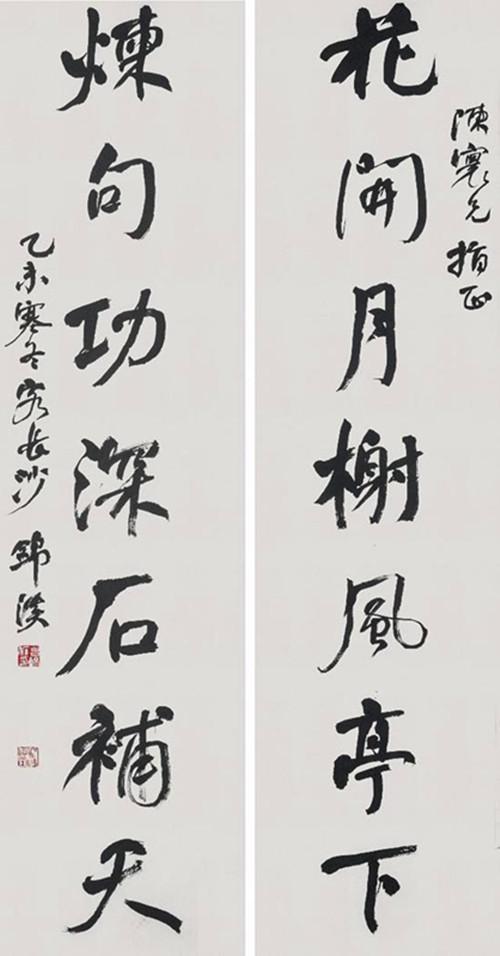 陳兄指正
花開月榭風亭下
煉句功深石補天
乙未寒冬客長沙 錦